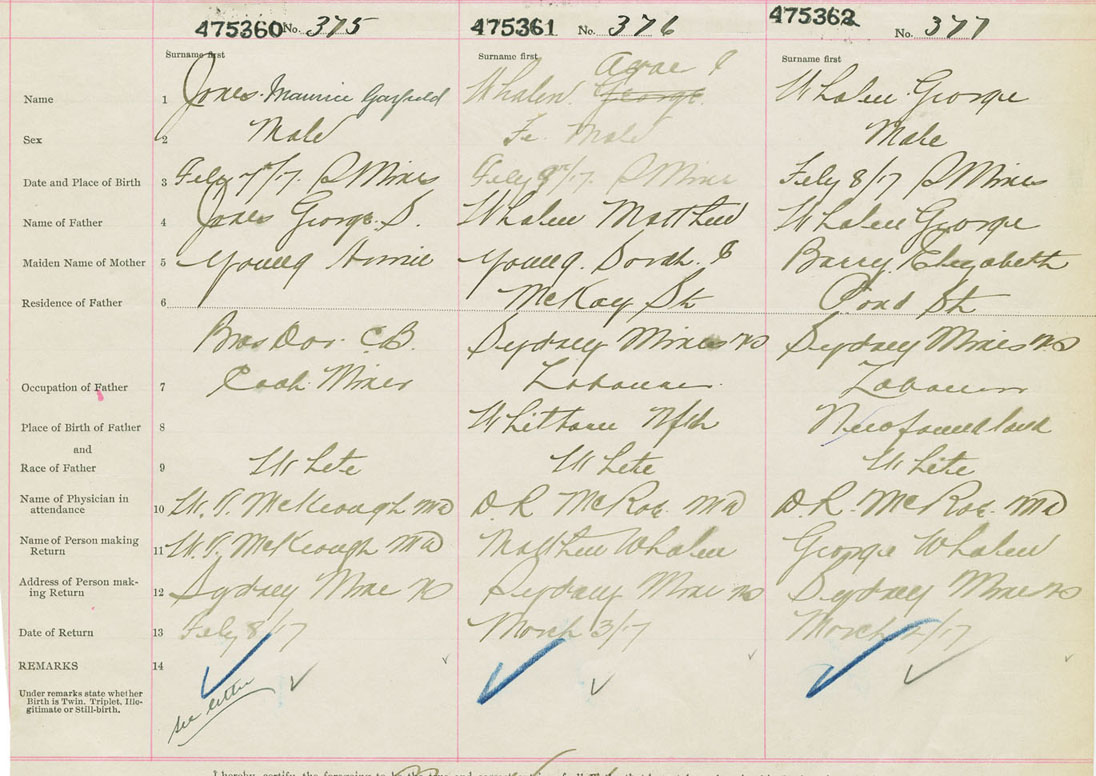 475360 No. 375 475361 No. 376 475362 No. 377
Surname first Surname first Surname first
Name 1 Jones Maurice Garfield Whalen George Whalen George
Sex 2 Male Fe Male Male
Date and Place of Birth 3 Feby 7th/17. S Mines Feby 9th/17. S Mines Feby 8/17 S Mines
Name of Father 4 Jones George S. Whalen Matthew Whalen George
Maiden Name of Mother 5 Young Annie Young. Barry Elizabeth
Residence of Father 6 McKay St Pond St
Bras Dor C.B. Sydney Mines NS Sydney Mines NS
Occupation of Father 7 Coal Miner Labourer Labourer
Place of Birth of Father 8 Nfld Newfoundland
and
Race of Father 9 White White White
Name of Physician in
attendance 10 McKeough MD D.R. McRae MD D.R. McRae MD
Name of Person making
Return 11 McKeough MD Matthew Whalen George Whalen
Address of Person mak-
ing Return 12 Sydney Mine NS Sydney Mine NS Sydney Mine NS
Date of Return 13 Feby 8/17 March 3/17 March /17
REMARKS 14
Under remarks state whether
Birth is Twin, Triplet, Ille-
gitimate or Still-birth.
see letter
I hereby certify the foregoing to be